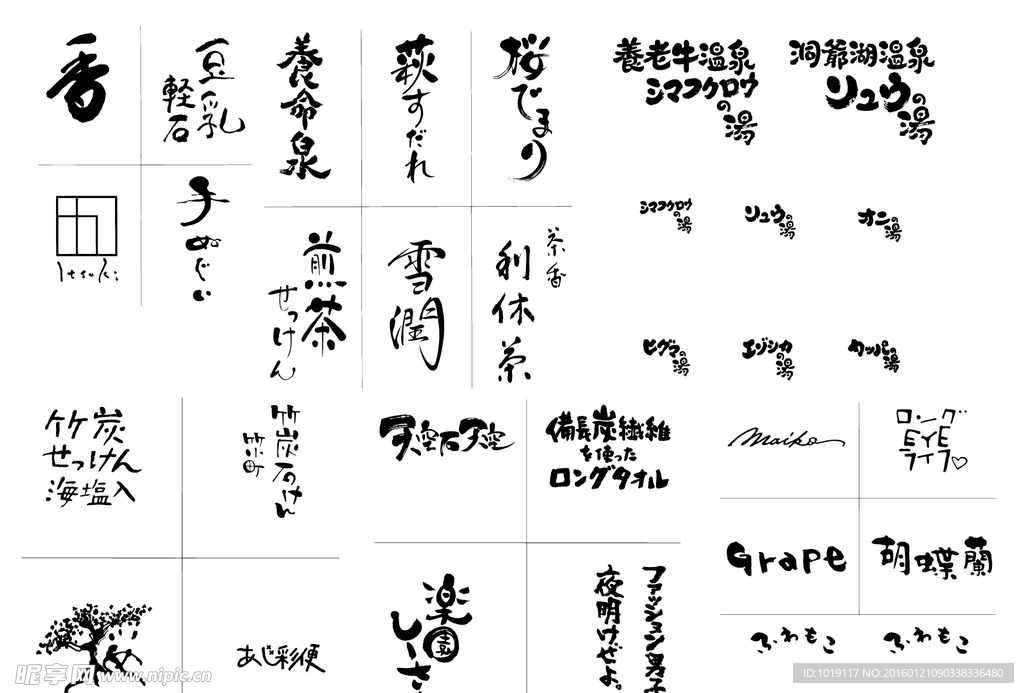 香
豆乳
軽石
養命泉
萩すだれ
桜でまり
養老牛温泉
シマフクロウ
の湯
洞爺湖温泉
リュウの
湯
手ぬぐい
煎茶
せっけん
雪潤
茶香
利休茶
シマフクロウ
の湯
リュウの
湯
オニの
湯
ヒグマの
湯
エゾシカ
の湯
カッパの
湯
竹炭
せっけん
海塩入
竹炭石けん
竹小町
天空石天空
備長炭繊維
を使った
ロングタオル
Maiko
ロング
EYE
ライフ♡
Grape
胡蝶蘭
楽園
しーさ
あじ彩便
ファッション男子
夜明けぜよ。
ふわもこ
ふわもこ
昵享网 www.nipic.cn
ID:1019117 NO:20160121090338336480